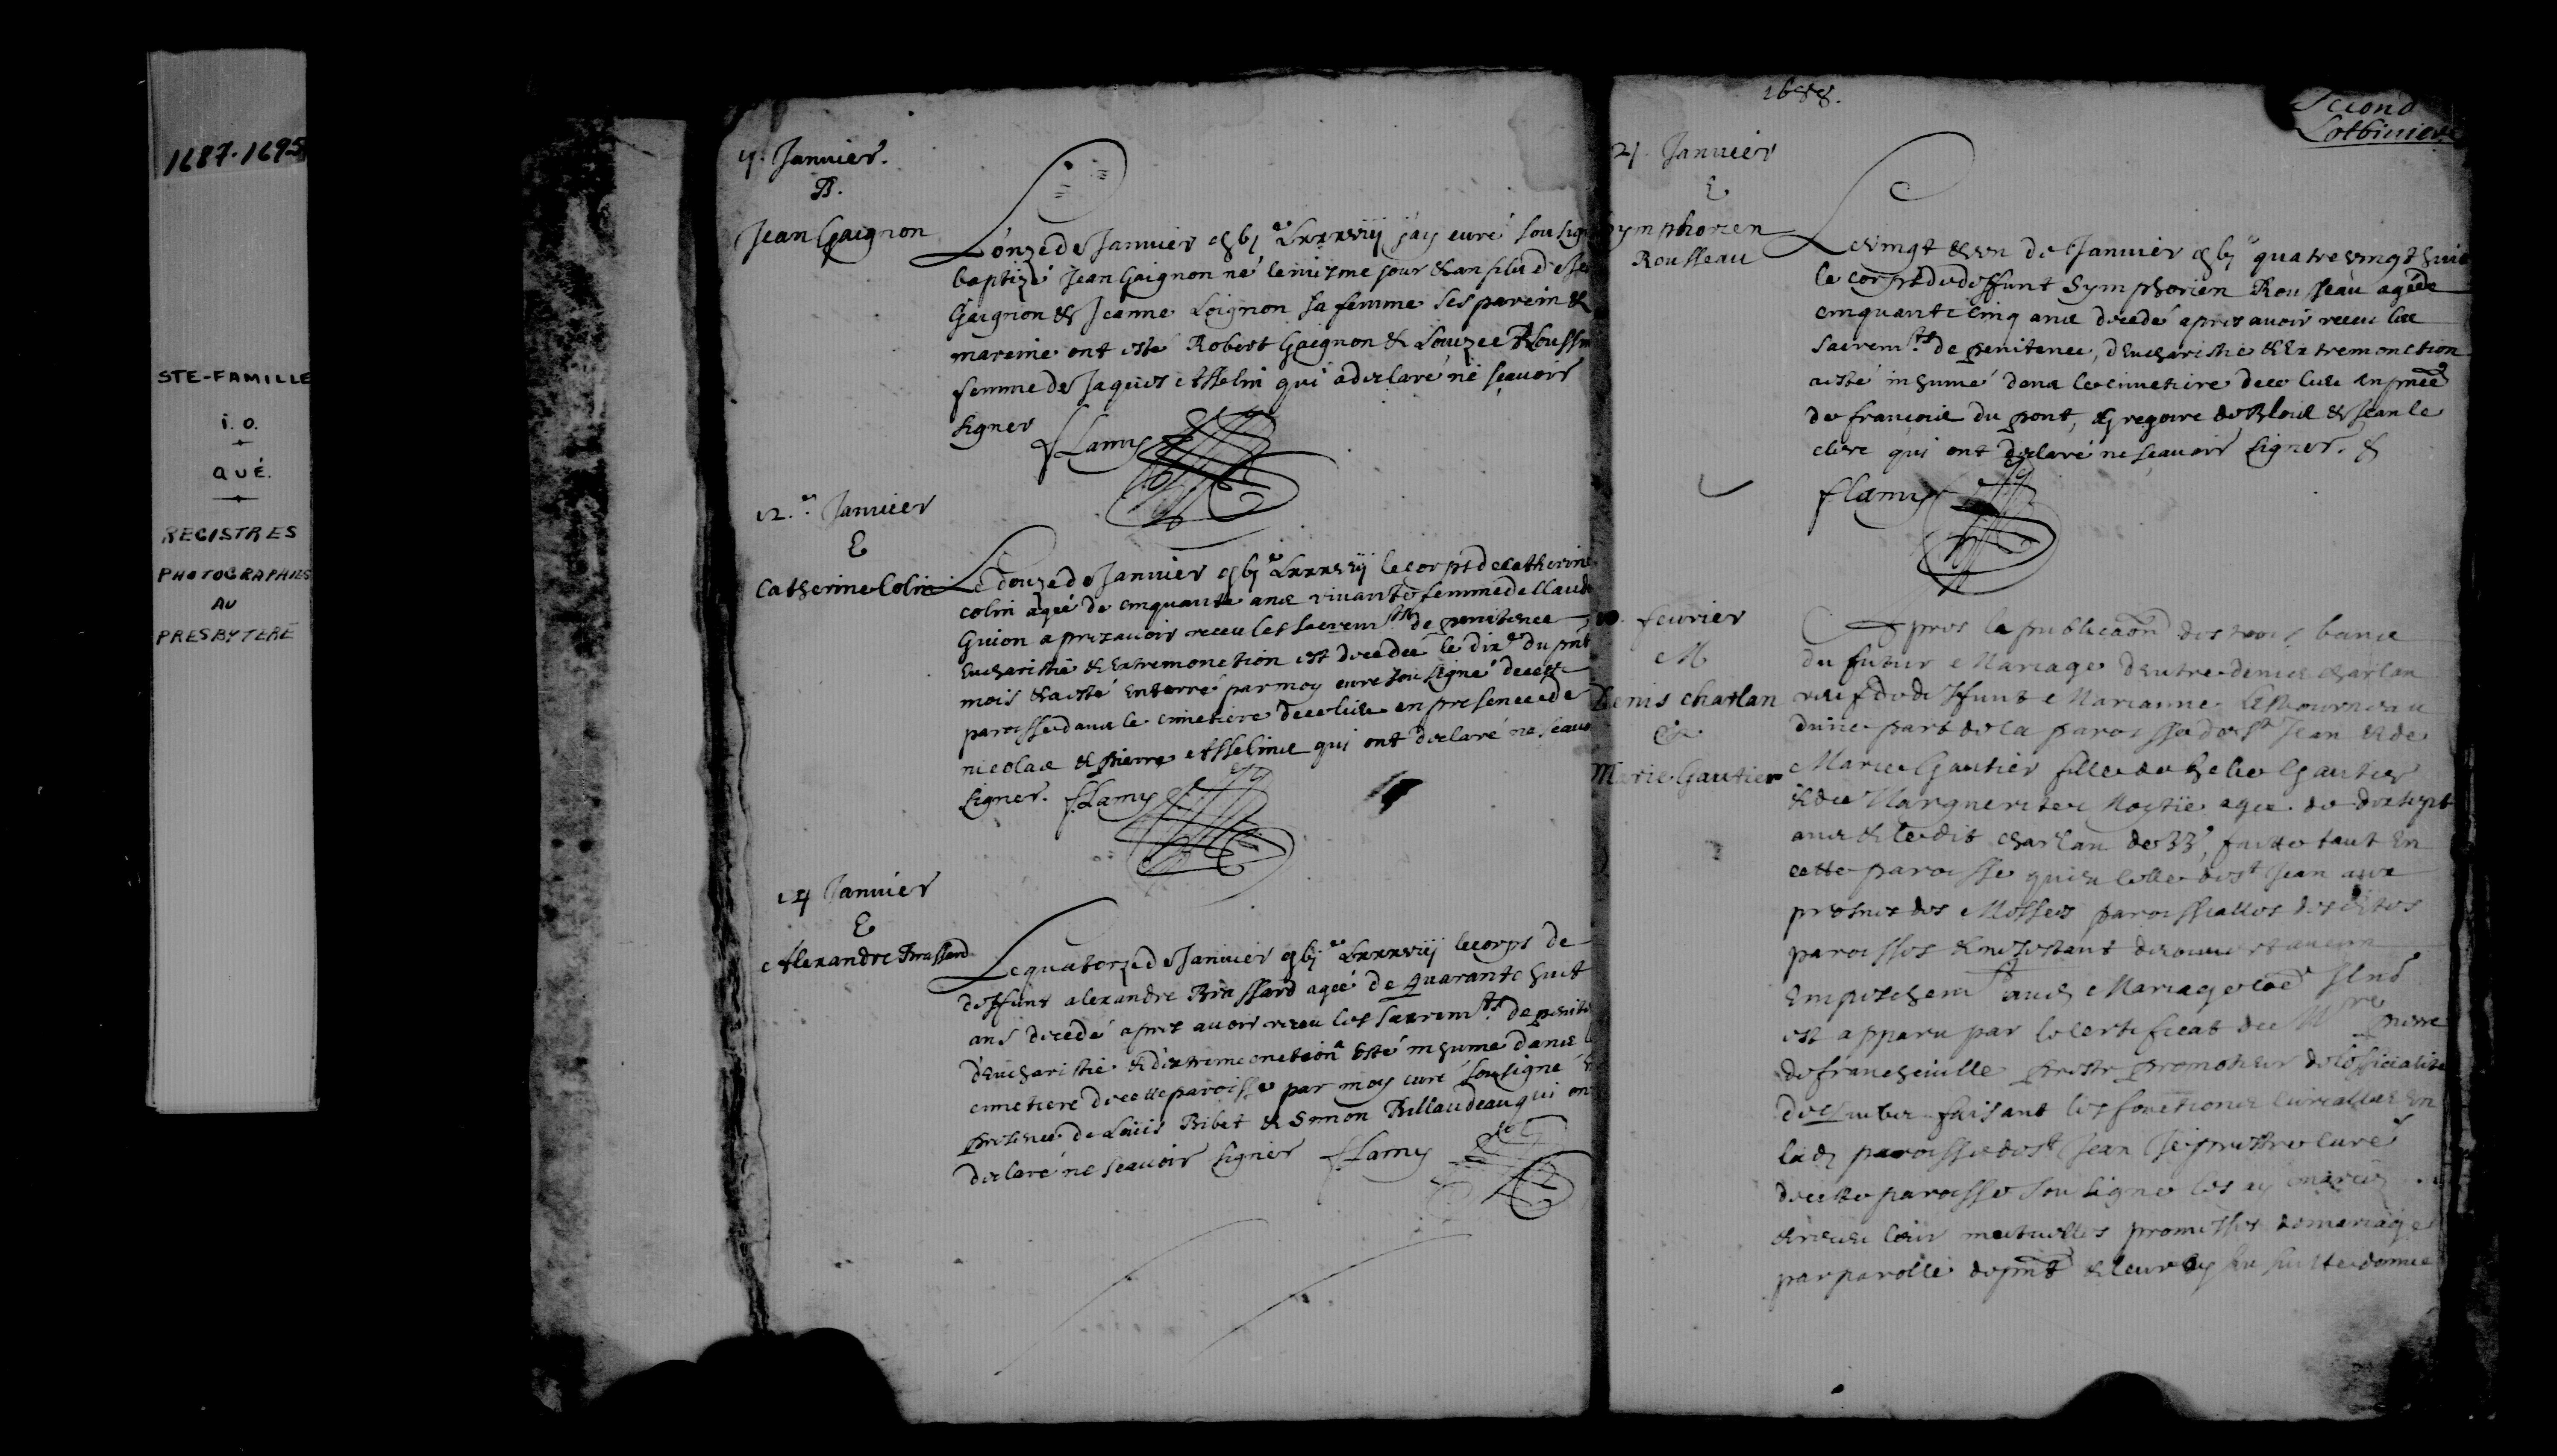 1687-1695
STE-FAMILLE
i. o.
QUÉ.
REGISTRES
PHOTOGRAPHIES
AU
PRESBYTERE
11. Janvier.
B.
Jean Gaignon
L'onze de Janvier LXXXViij j'ay curé sousig
baptizé Jean Gaignon né le mesme jour & an fils de Je
Gaignon & Jeanne Loignon sa femme ses parein &
mareine ont esté Robert Gaignon & Louzee Roussin
femme de Jaques Asselin qui a declaré ne sçavoir
signer
fLamy
12.e Janvier
E
Catherine Colin
Le douze de Janvier LXXXViij le corps de catherine
colin agée de cinquante ans vivante femme de Claude
Guion apres avoir receu les sacremts de penitence
Eucharistie & Extremonction est decedée le dixe du pnt
mois & a esté enterré par moy curé sousigné de cette
paroisse dans le cimetiere de ce lieu en presence de
nicolas & pierre Asselins qui ont declaré ne scavo
signer. fLamy
14 Janvier
E
Alexandre Brassard
Le quatorze de Janvier LXXXViij le corps de
deffunt alexandre Brassard agée de quarante huit
ans decedé apres avoir receu les sacremts de penite
d'eucharistie & d'extremeonction esté inhumé dans le
cimetiere de cette paroisse par moy curé sousigné
presence de Louis Bibet & Simon Billaudeau qui on
declaré ne scavoir signer fLamy
1688.
Second
Lotbiniere
21. Janvier
E
Symphorien
Rousseau
Le vingt & un de Janvier quatre vingt huit
le corps de deffunt Symphorien Rousseau agé de
cinquante cinq ans decedé apres avoir receu les
sacremts de penitence, d'Eucharistie & Extremonction
a esté inhumé dans le cimetiere de ce lieu en pnce
de francois du pont, gregoire de Blois & Jean le
clerc qui ont declaré ne scavoir signer. &
fLamy
fevrier
M
Denis charlan
&
Marie Gautier
Apres la publicaon des trois bans
du futur Mariage d'entre denis charlan
veuf de deffunt Marianne
d'une part de la paroisse de St Jean & de
Marie Gautier fille de helie Gautier
& de Marguerite agee de dix sept
ans & ledit charlan de 33, faitte tant en
cette paroisse qu'en celle de St Jean aux
prosnes des Messes paroissialles desdites
paroisses & ne sestant decouvert aucun
Empeschemt aud Mariage
est apparu par le certificat de Mre pierre
de francheville prestre promoteur de l'officialité
de quebec faisant les fonctions curialles en
lad paroisse de St Jean Je prestre curé
de cette paroisse sousigné les ay mariez
& receu leur mutuelles promesses de mariage
par parolle de pnt & leur ay donné